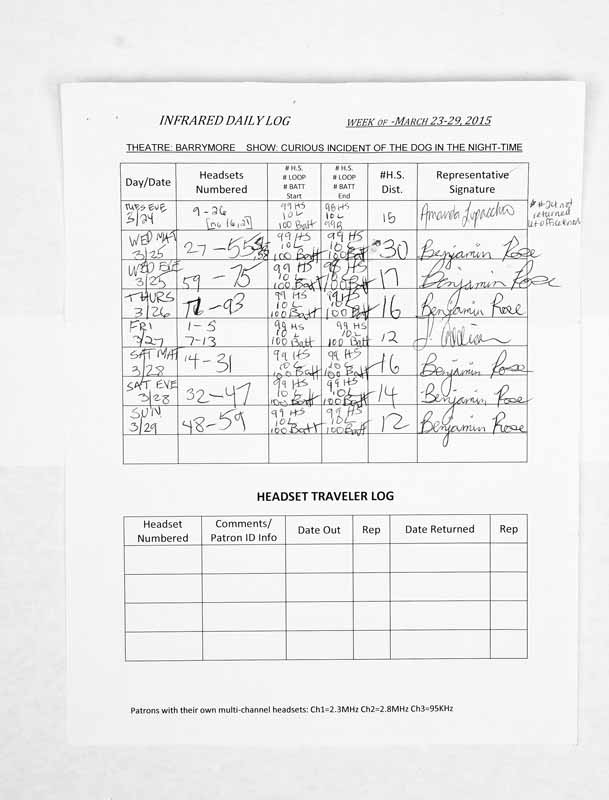 INFRARED DAILY LOG WEEK OF -MARCH 23-29, 2015
THEATRE: BARRYMORE SHOW: CURIOUS INCIDENT OF THE DOG IN THE NIGHT-TIME
Day/Date Headsets Numbered # H.S. # LOOP # BATT Start # H.S. # LOOP # BATT End #H.S. Dist. Representative Signature
TUES EVE 3/24 9-26 [no 16, 21] 99 HS 10 L 100 Batt 98 HS 10 L 99B 15 Amanda
# 24 not
returned
WED MAT 3/25 27-55 99 HS 10 L 100 Batt 99 HS 100 Batt 30 Benjamin Rose
WED EVE 3/25 59-75 99 HS 10 L 100 Batt 99 HS 10 L 100 Batt 17 Benjamin Rose
THURS 3/26 76-93 99 HS 10 L 100 Batt 99 HS 10 L 100 Batt 16 Benjamin Rose
FRI 3/27 1-5 7-13 99 HS 10 L 100 Batt 99 HS 10 L 100 Batt 12
SAT MAT 3/28 14-31 99 HS 10 L 100 Batt 99 HS 10 L 100 Batt 16 Benjamin Rose
SAT EVE 3/28 32-47 99 HS 10 L 100 Batt 99 HS 10 L 100 Batt 14 Benjamin Rose
SUN 3/29 48-59 99 HS 10 L 100 Batt 99 HS 10 L 100 Batt 12 Benjamin Rose
HEADSET TRAVELER LOG
Headset Numbered Comments/ Patron ID Info Date Out Rep Date Returned Rep
Patrons with their own multi-channel headsets: Ch1=2.3MHz Ch2=2.8MHz Ch3=95KHz